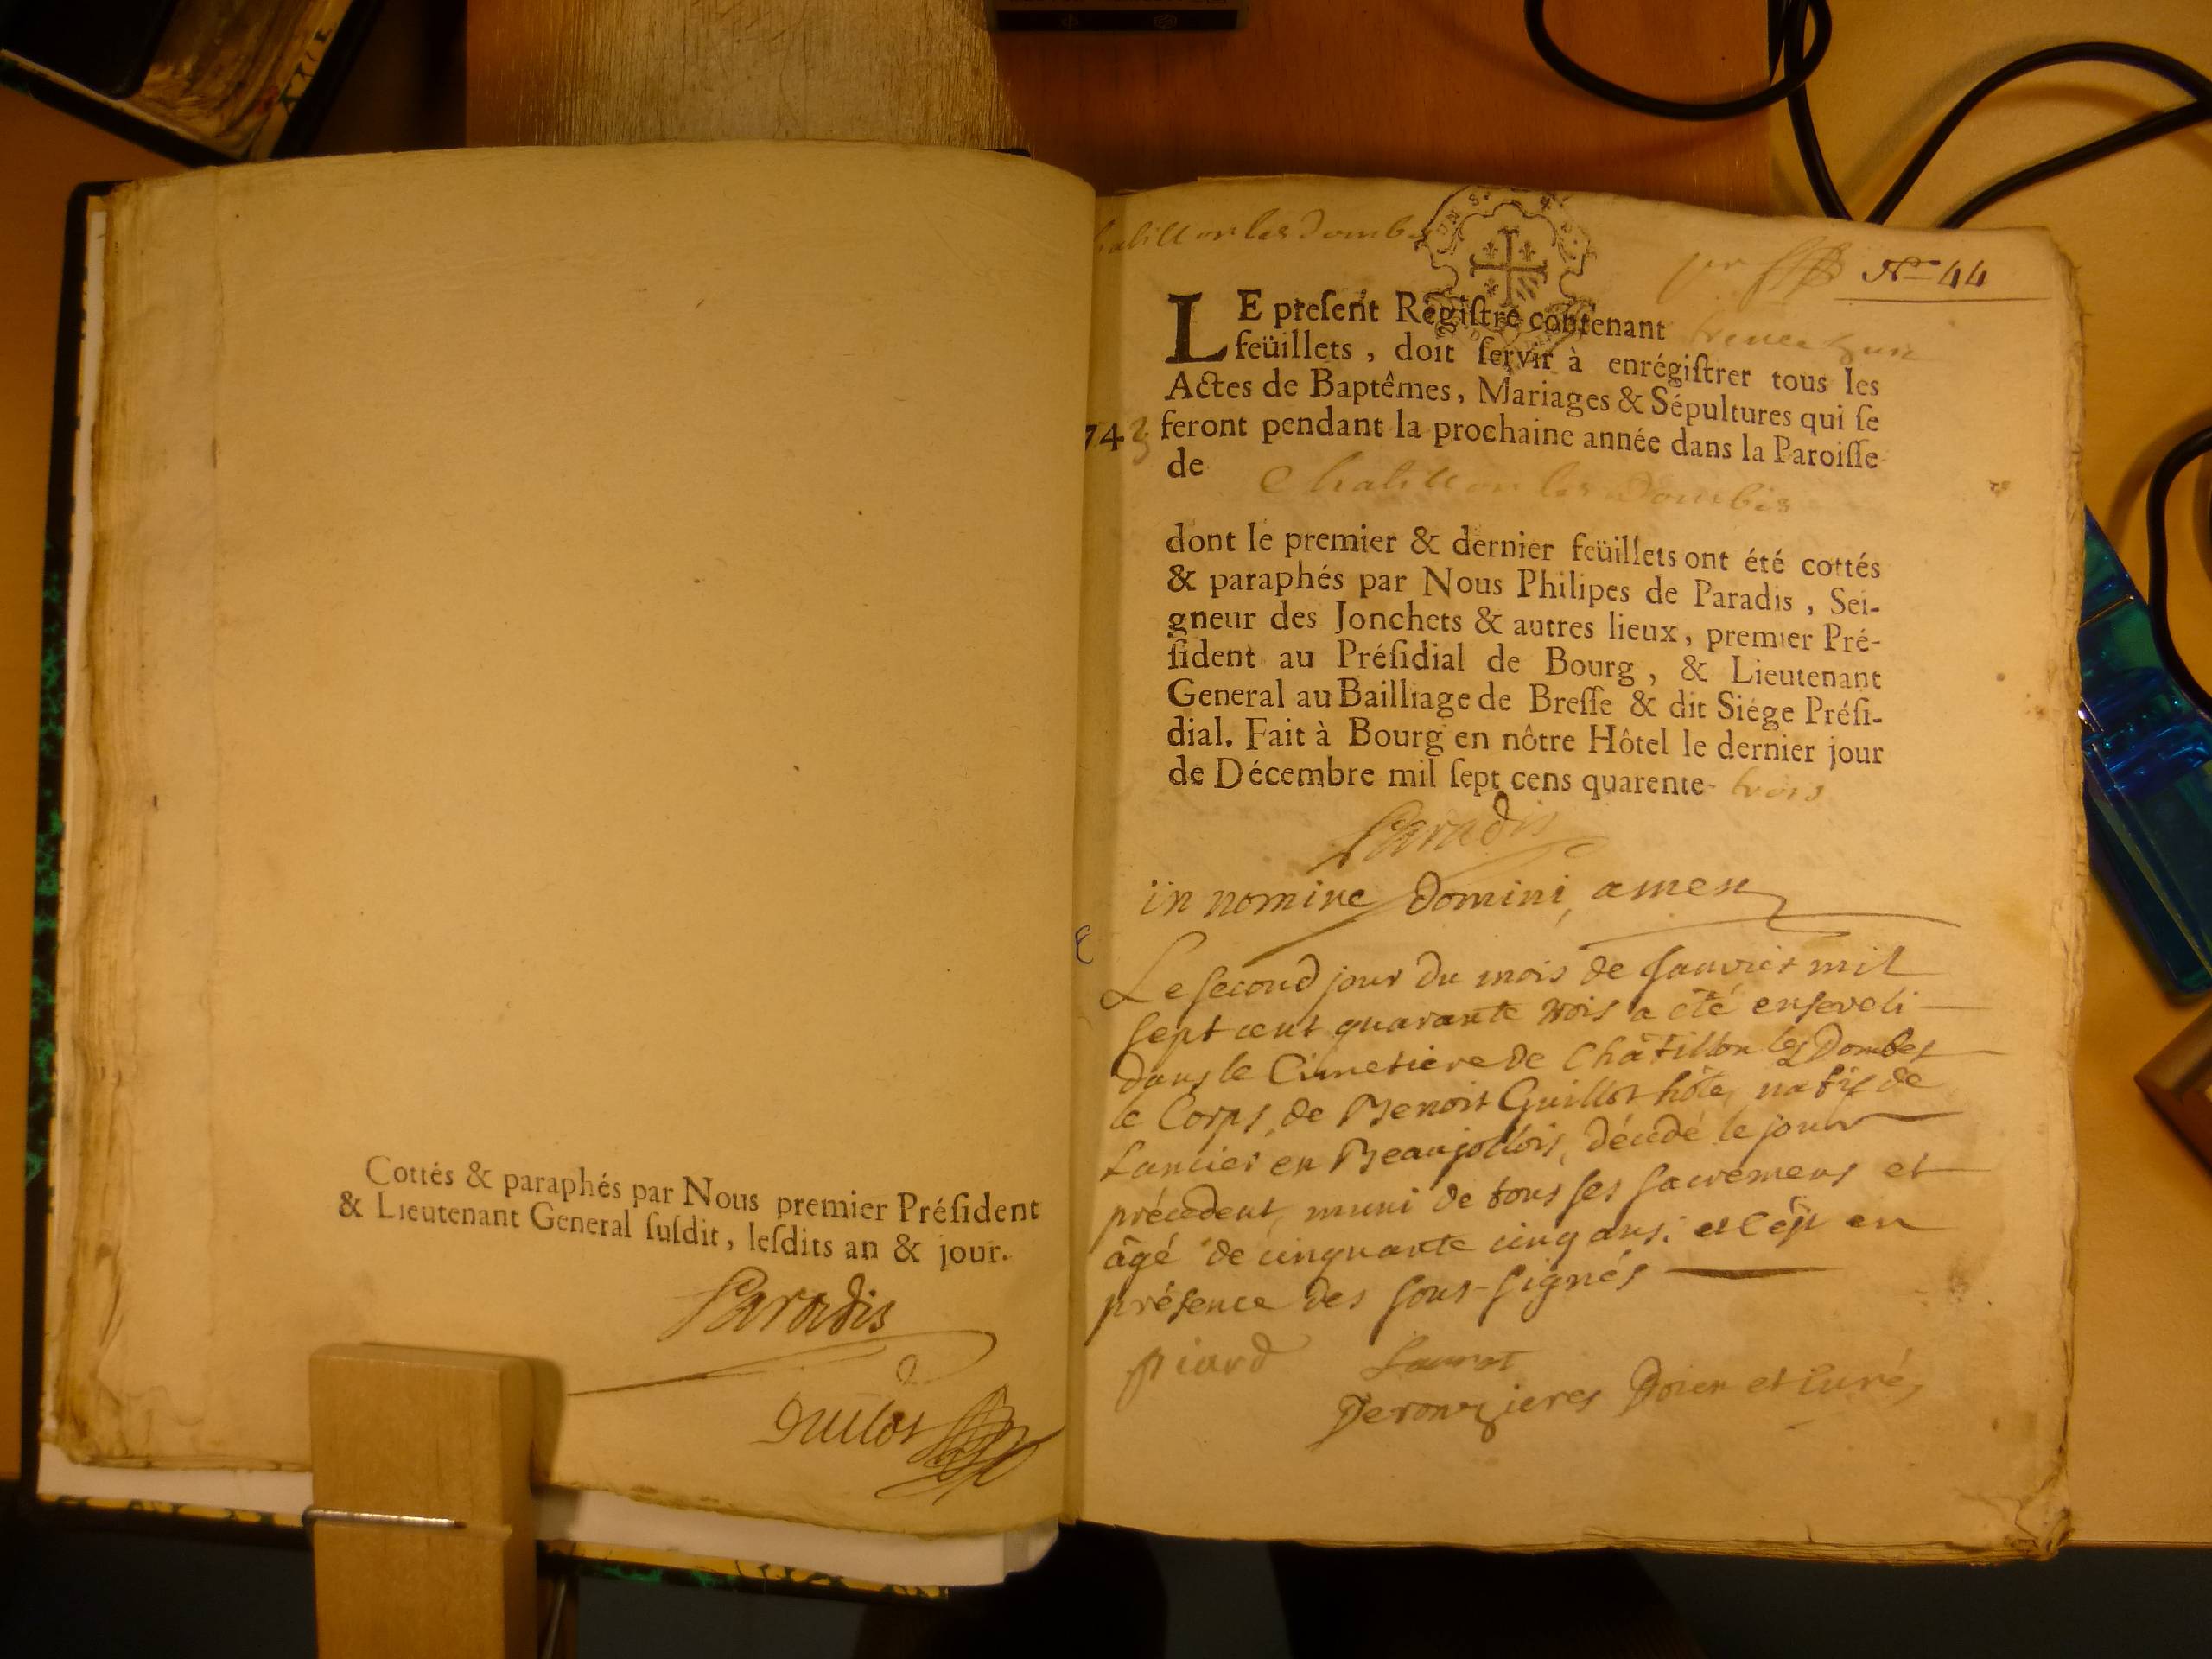 Cottés & paraphés par Nous premier Préſident
& Lieutenant General ſuſdit, leſdits an & jour.
Paradis
Guillot
hatillon les Dombe
Nro 44
LE preſent Regiſtre contenant
feüillets, doit ſervir à enrégiſtrer tous les
Actes de Baptêmes, Mariages & Sépultures qui ſe
743 feront pendant la prochaine année dans la Paroiſſe
de Chatillon les Dombes
dont le premier & dernier feüillets ont été cottés
& paraphés par Nous Philipes de Paradis, Sei-
gneur des Jonchets & autres lieux, premier Pré-
ſident au Préſidial de Bourg, & Lieutenant
General au Bailliage de Breſſe & dit Siége Préſi-
dial. Fait à Bourg en nôtre Hôtel le dernier jour
de Décembre mil ſept cens quarente- trois
Paradis
in nomine Domini, amen
Le second jour du mois de Janvier mil
sept cent quarante trois a été enseveli
dans le Cimetiere de Châtillon les Dombes
le Corps de Benoit Guillot hôte, natif de
Lancier en Beaujollois, décédé le jour
précedent, muni de tous ses sacremens et
âgé de cinquante cinq ans; et c'est en
présence des sous-signés
piard
Deronzieres Doien et Curé,